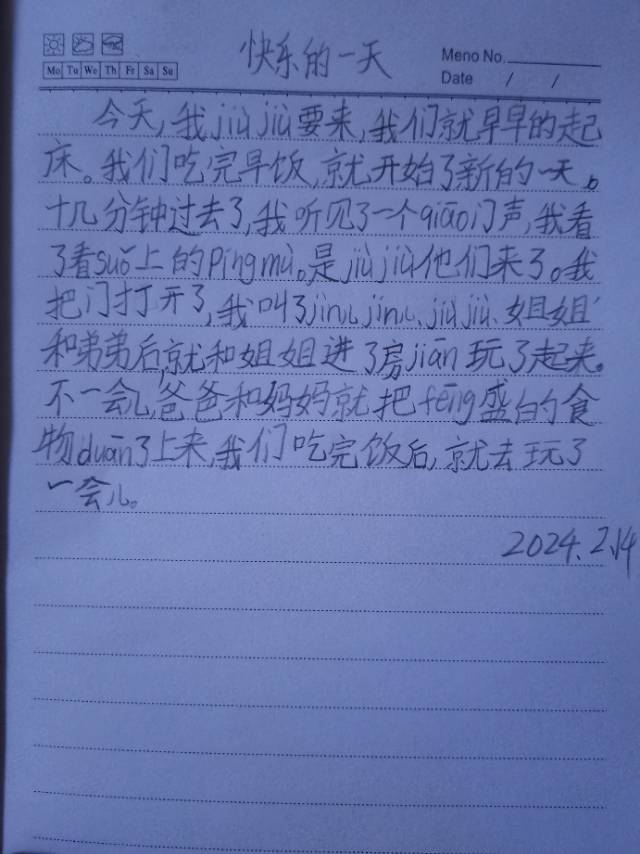 快乐的一天
Meno No.
Mo Tu We Th Fr Sa Su
Date / /
今天,我jiù jiù要来,我们就早早的起
床。我们吃完早饭,就开始了新的一天。
十几分钟过去了,我听见了一个qiāo门声,我看
了看suǒ上的píng mù。是jiù jiù他们来了。我
把门打开了,我叫了jìnㄟ jìnㄟ、jiù jiù、姐姐
和弟弟后,就和姐姐进了房jiān玩了起来。
不一会儿,爸爸和妈妈就把fēng盛的食
物duān了上来,我们吃完饭后,就去玩了
一会儿。
2024.2.14